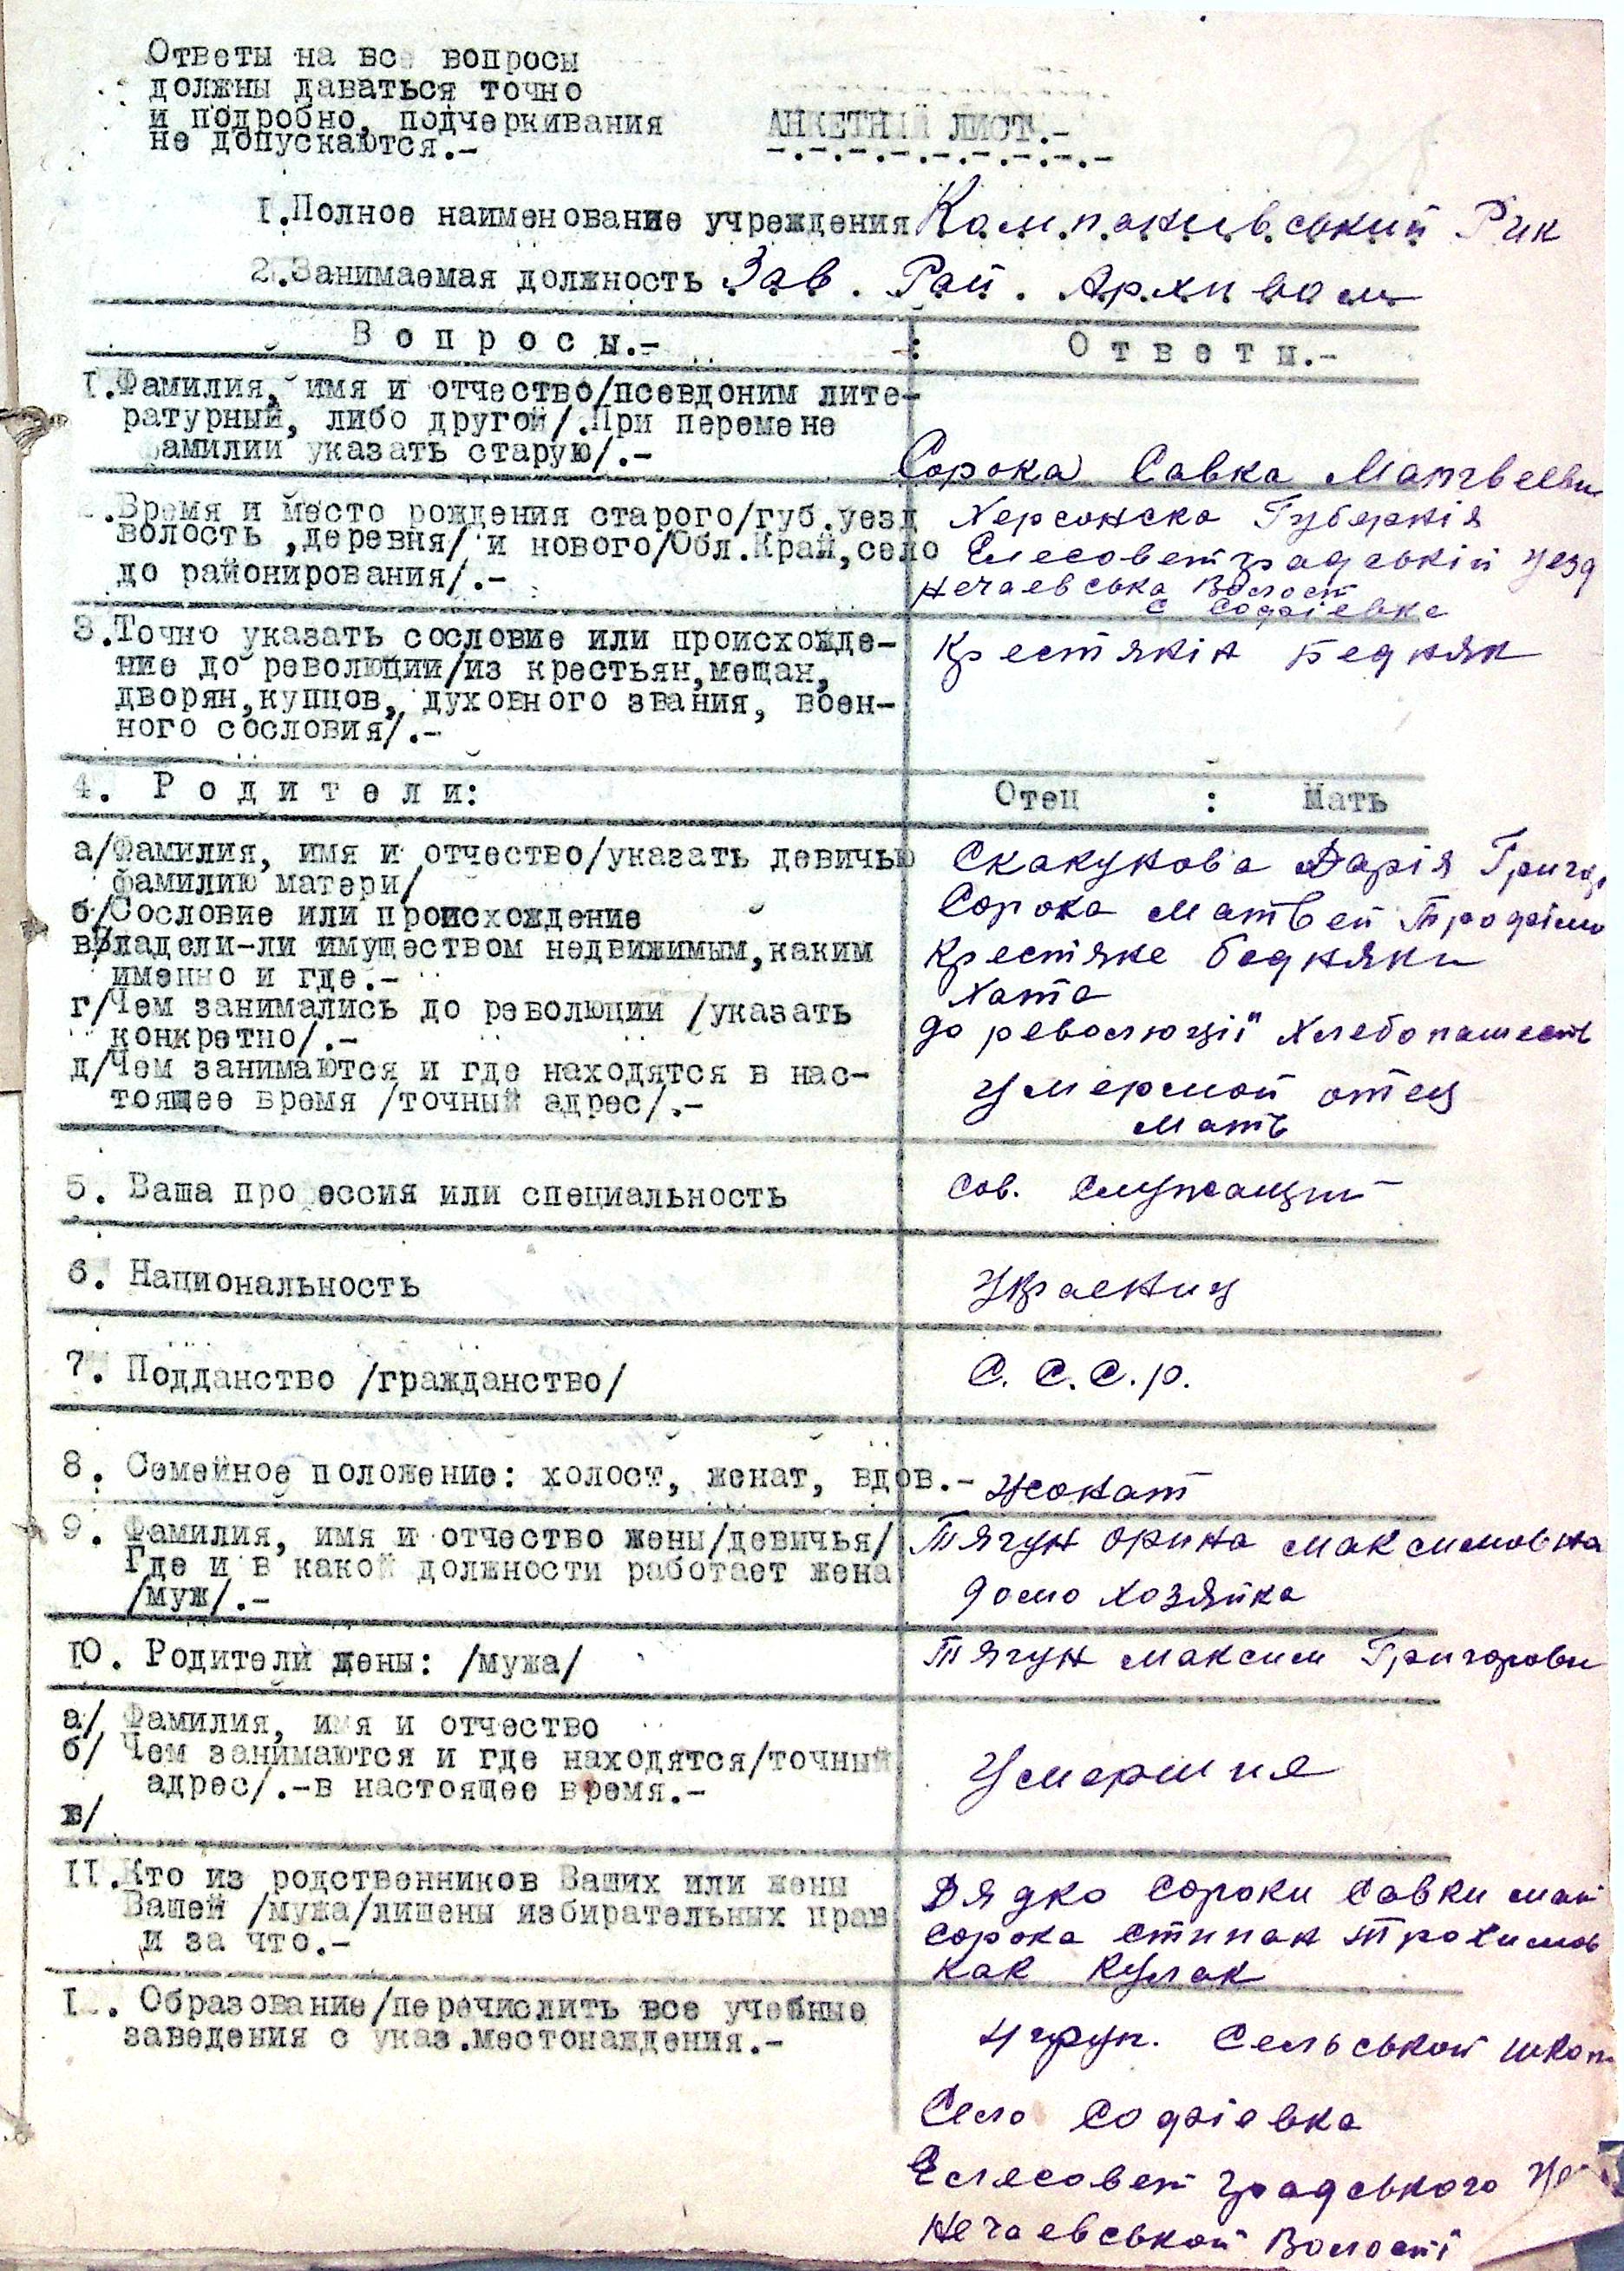 Ответы на все вопросы
должны даваться точно
и подробно, подчеркивания
не допускаются.-
АНКЕТНЫЙ ЛИСТ.-
1.Полное наименование учреждения Компаниївський Рик
2.Занимаемая должность Зав. Рай. Архивом
Вопросы.- : Ответы.-
1.Фамилия, имя и отчество/псевдоним лите-
ратурный, либо другой/.При перемене
фамилии указать старую/.-
Сорока Савка Матвееви
.Время и место рождения старого/губ.уезд
волость ,деревня/ и нового/Обл.Край,село
до районирования/.-
Херсонска Губернія
Елесоветградській уезд
Нечаевська Волост
с Софіевка
3.Точно указать сословие или происхожде-
ние до революции/из крестьян,мещан,
дворян,купцов, духовного звания, воен-
ного сословия/.-
Крестянін бедняк
4. Родители:
Отец : Мать
а/Фамилия, имя и отчество/указать девичью
фамилию матери/
б/Сословие или происхождение
в/Владели-ли имуществом недвижимым,каким
именно и где.-
г/Чем занимались до революции /указать
конкретно/.-
д/Чем занимаются и где находятся в нас-
тоящее время /точный адрес/.-
Скакунова Дарія Григор
Сорока Матвей Трофімо
Крестяне бедняки
Хата
до революції Хлебопашеств
умершой отец
мать
5. Ваша профессия или специальность
Сов. Служащий
6. Национальность
Украениц
7. Подданство /гражданство/
С.С.С.р.
8. Семейное положение: холост, женат, вдов.-
жонат
9. Фамилия, имя и отчество жены/девичья/
Где и в какой должности работает жена
/муж/.-
Тягун Орина Максимовна
домо Хозяйка
10. Родители жены: /мужа/
Тягун Максим Григорови
а/ Фамилия, имя и отчество
б/ Чем занимаются и где находятся/точный
адрес/.-в настоящее время.-
в/
Умершие
11.Кто из родственников Ваших или жены
Вашей /мужа/лишены избирательных прав
и за что.-
Дядко Сороки Савки мат
Сорока Стипан Трохимов
как Кулак
1 . Образование/перечислить все учебные
заведения с указ.местонаждения.-
4 груп. Сельськой шко
Село Софіевка
Елесовет градського уе
Нечаевськой Волості